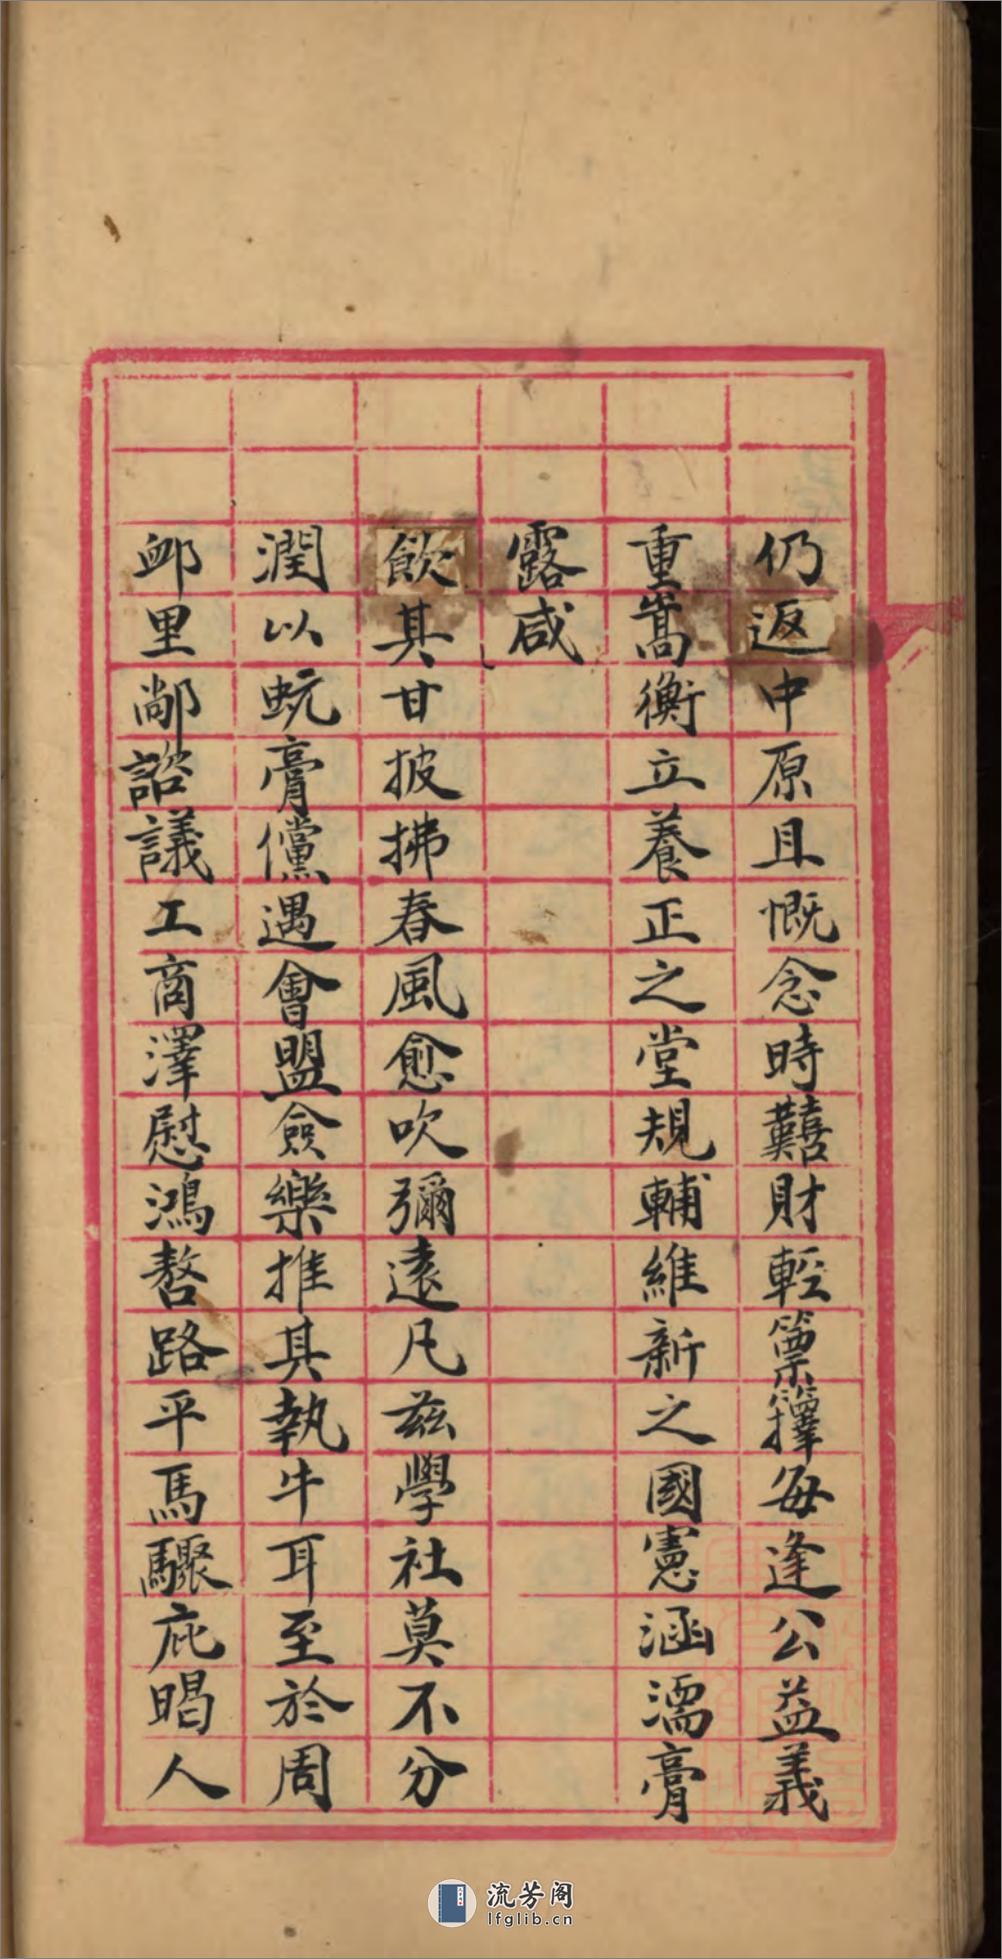 仍返中原且慨念時囏財輕篻籜每逢公益義
重嵩衡立養正之堂規輔維新之國憲涵濡膏
露咸
飲其甘披拂春風愈吹彌遠凡兹學社莫不分
潤以蚖膏儻遇會盟僉樂推其執牛耳至於周
䘏里鄰諮議工商澤慰鴻嗸路平馬驟庇暍人
流芳阁
lfglib.cn